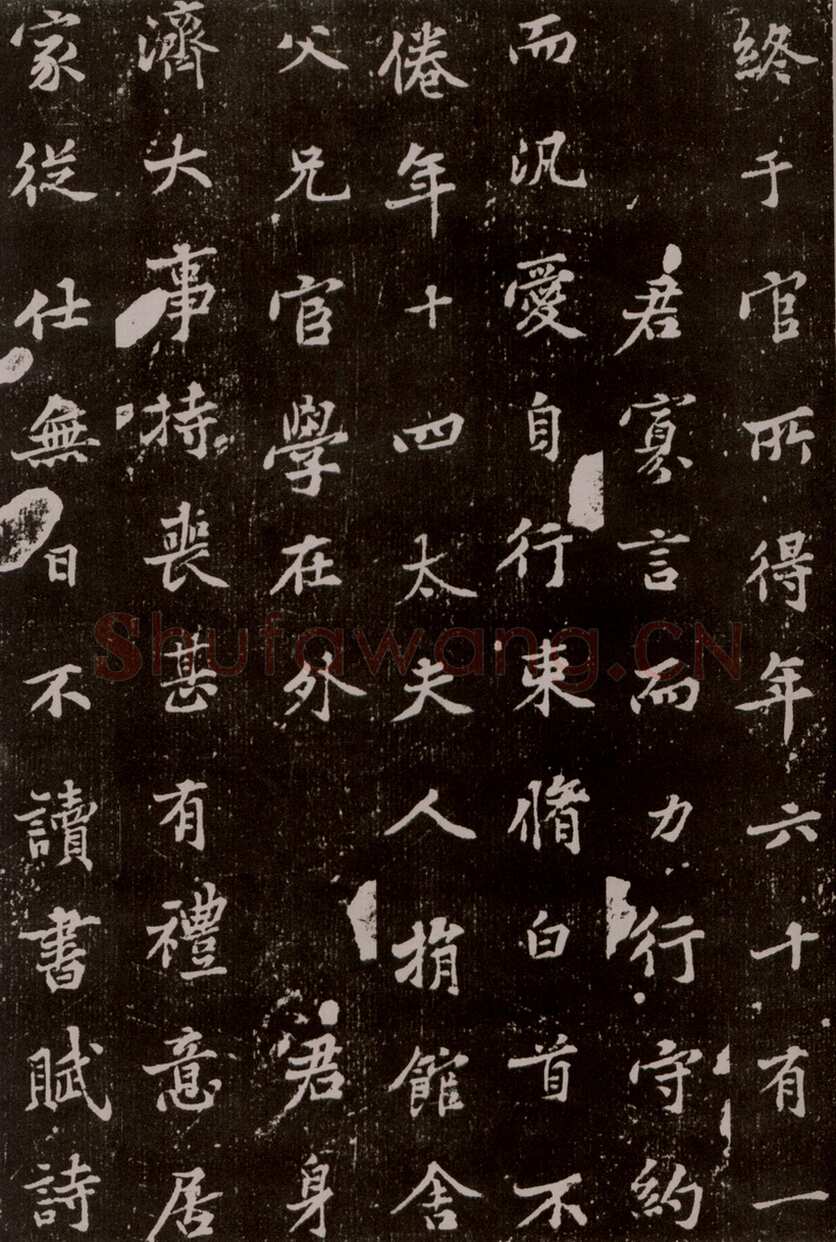 終于官所得年六十有一
君寡言而力行守約
而汎愛自行束脩白首不
倦年十四太夫人捐館舍
父兄官學在外君身
濟大事持喪甚有禮意居
家從仕無日不讀書賦詩
Shufawang.CN